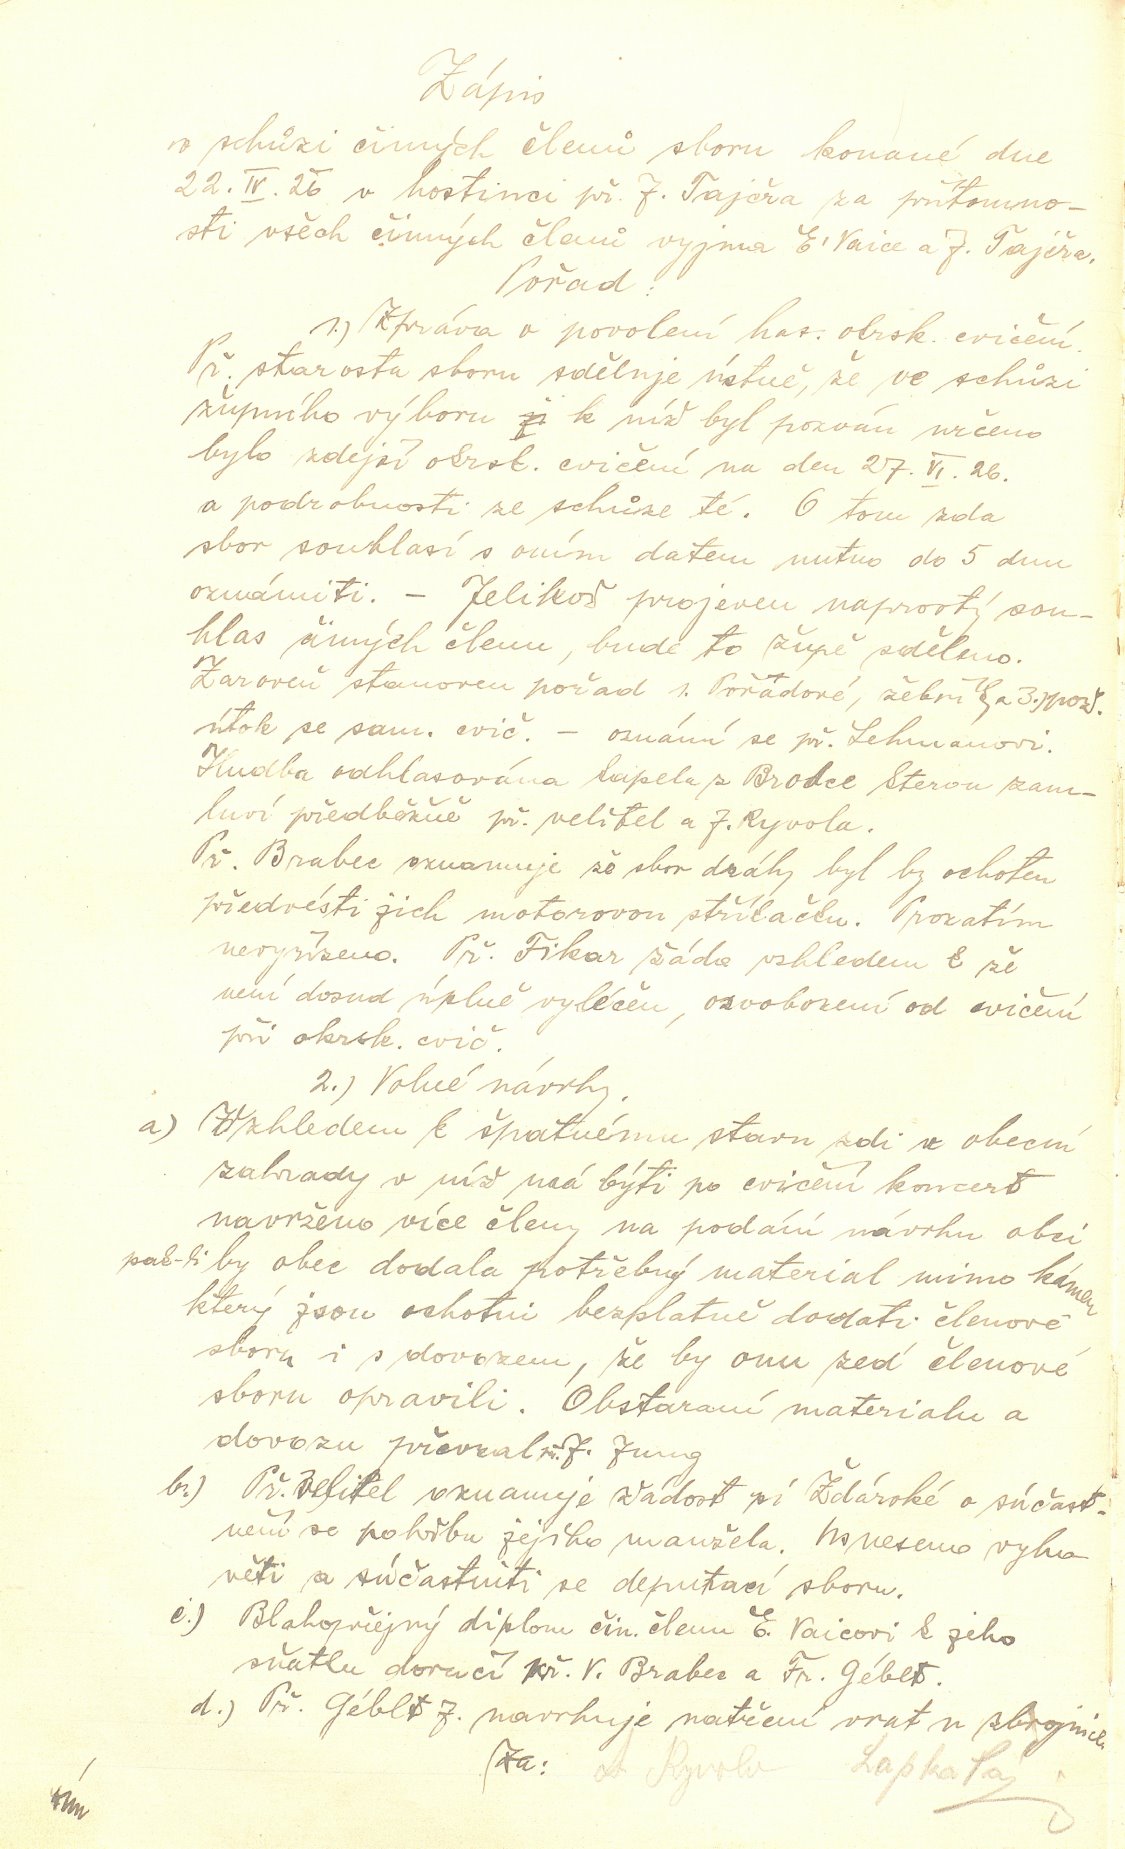 Zápis
o schůzi činných členů sboru konané dne
22. IV. 26 v hostinci př. J. Tajčra za přítomno-
sti všech činných členů vyjma Č. Vaice a J. Tajčra.
Pořad:
1.) Zpráva o povolení has. okrsk. cvičení.
Př. starosta sboru sděluje ústně, že ve schůzi
župního výboru k níž byl pozván určeno
bylo zdejší okrsk. cvičení na den 27. VI. 26.
a podrobnosti ze schůze té. O tom zda
sbor souhlasí s oním datem nutno do 5 dnu
oznámiti. – Jelikož projeven naprostý sou-
hlas činých členu, bude to župě sděleno.
Zároveň stanoven pořad 1. Pořadové, žebří a 3.) pož.
útok se sam. cvič. – oznámí se př. Lehmanovi.
Hudba odhlasována kapela z Brodce kterou zam-
luví předběžně př. velitel a J. Ryvola.
Př. Brabec oznamuje že sbor dráhy byl by ochoten
předvésti jich motorovou stříkačku. Prozatím
nevyřízeno. Př. Fikar žádá vzhledem k že
není dosud úplně vyléčen, osvobození od cvičení
při okrsk. cvič.
2.) Volné návrhy.
a) Vzhledem k špatnému stavu zdi v obecní
zahrady v níž má býti po cvičení koncert
navrženo více členy na podání návrhu obci
pak-li by obec dodala potřebný material mimo kámen
který jsou ochotni bezplatně dodati členové
sboru i s dovozem, že by onu zeď členové
sboru opravili. Obstaraní materialu a
dovozu převzal př. J. Jung
b.) Př. velitel oznamuje žádost pí Žďárské o súčast-
nění se pohřbu jejího manžela. Usneseno vyho-
věti a súčastniti se deputací sboru.
c.) Blahopřejný diplom čin. členu Č. Vaicovi k jeho
sňatku doručí př. V. Brabec a Fr. Géblt.
d.) Př. Géblt J. navrhuje natření vrat u zbrojnice
Za: Ryvola Lapka